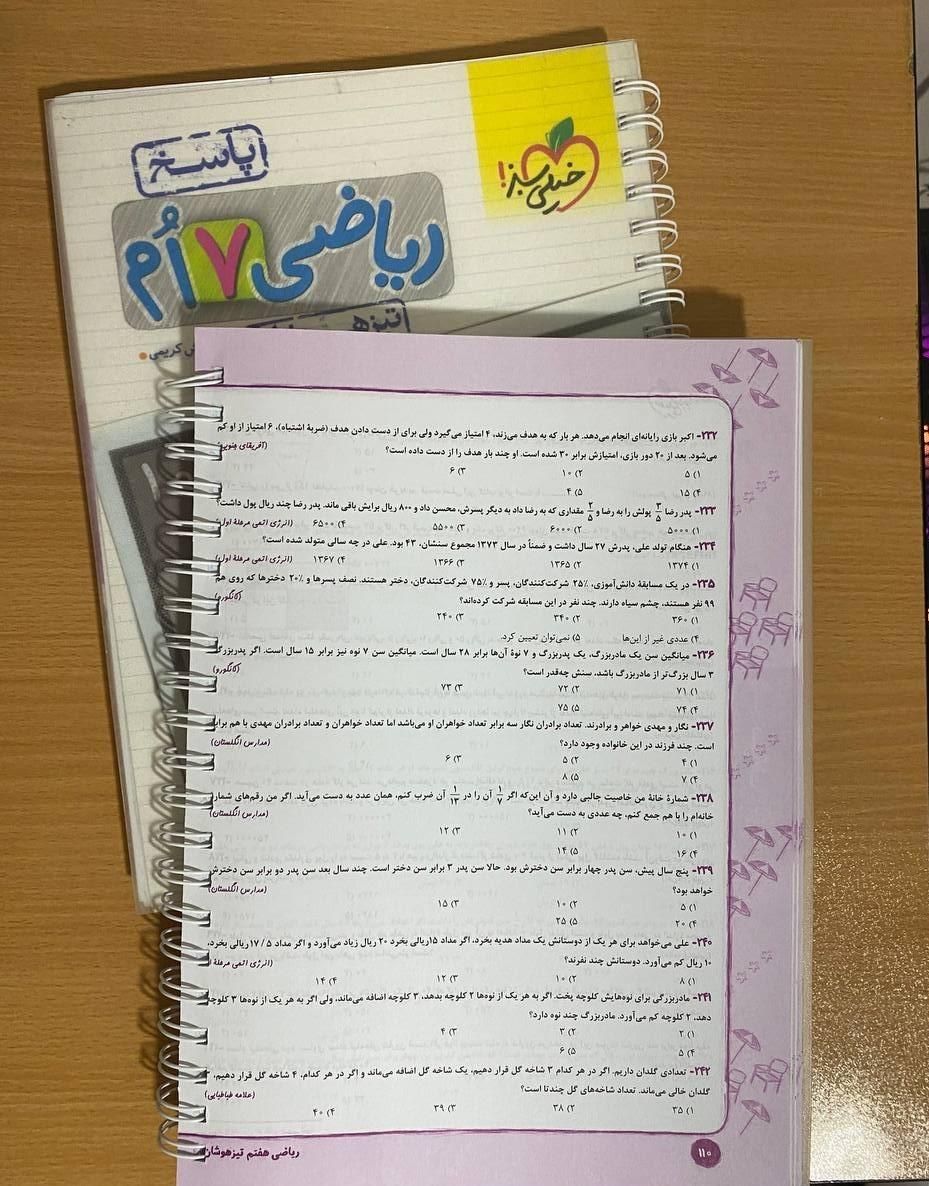 خیلی سبز!
پاسخ
ریاضی ۷ اُم
تیزهـ
کریمی
۲۳۲- اکبر بازی رایانه‌ای انجام می‌دهد. هر بار که به هدف می‌زند، ۴ امتیاز می‌گیرد ولی برای از دست دادن هدف (ضربهٔ اشتباه)، ۶ امتیاز از او کم
می‌شود. بعد از ۲۰ دور بازی، امتیازش برابر ۳۰ شده است. او چند بار هدف را از دست داده است؟ (آفریقای جنوبی)
۱) ۵ ۲) ۱۰ ۳) ۶
۴) ۱۵ ۵) ۴
۲۳۳- پدر رضا ۳/۵ پولش را به رضا و ۲/۵ مقداری که به رضا داد به دیگر پسرش، محسن داد و ۸۰۰ ریال برایش باقی ماند. پدر رضا چند ریال پول داشت؟
۱) ۵۰۰۰ ۲) ۶۰۰۰ ۳) ۵۵۰۰ ۴) ۶۵۰۰ (انرژی اتمی مرحلهٔ اول)
۲۳۴- هنگام تولد علی، پدرش ۲۷ سال داشت و ضمناً در سال ۱۳۷۳ مجموع سنشان، ۴۳ بود. علی در چه سالی متولد شده است؟
۱) ۱۳۷۴ ۲) ۱۳۶۵ ۳) ۱۳۶۶ ۴) ۱۳۶۷ (انرژی اتمی مرحلهٔ اول)
۲۳۵- در یک مسابقهٔ دانش‌آموزی، ۲۵٪ شرکت‌کنندگان، پسر و ۷۵٪ شرکت‌کنندگان، دختر هستند. نصف پسرها و ۲۰٪ دخترها که روی هم
۹۹ نفر هستند، چشم سیاه دارند. چند نفر در این مسابقه شرکت کرده‌اند؟ (کانگورو)
۱) ۳۶۰ ۲) ۳۴۰ ۳) ۲۴۰
۴) عددی غیر از این‌ها ۵) نمی‌توان تعیین کرد.
۲۳۶- میانگین سن یک مادربزرگ، یک پدربزرگ و ۷ نوهٔ آن‌ها برابر ۲۸ سال است. میانگین سن ۷ نوه نیز برابر ۱۵ سال است. اگر پدربزرگ
۳ سال بزرگ‌تر از مادربزرگ باشد، سنش چه‌قدر است؟ (کانگورو)
۱) ۷۱ ۲) ۷۲ ۳) ۷۳
۴) ۷۴ ۵) ۷۵
۲۳۷- نگار و مهدی خواهر و برادرند. تعداد برادران نگار سه برابر تعداد خواهران او می‌باشد اما تعداد خواهران و تعداد برادران مهدی با هم برابر
است. چند فرزند در این خانواده وجود دارد؟ (مدارس انگلستان)
۱) ۴ ۲) ۵ ۳) ۶
۴) ۷ ۵) ۸
۲۳۸- شمارهٔ خانهٔ من خاصیت جالبی دارد و آن این‌که اگر ۱/۷ آن را در ۱/۱۳ آن ضرب کنم، همان عدد به دست می‌آید. اگر من رقم‌های شمارهٔ
خانه‌ام را با هم جمع کنم، چه عددی به دست می‌آید؟ (مدارس انگلستان)
۱) ۱۰ ۲) ۱۱ ۳) ۱۲
۴) ۱۶ ۵) ۱۴
۲۳۹- پنج سال پیش، سن پدر چهار برابر سن دخترش بود. حالا سن پدر ۳ برابر سن دختر است. چند سال بعد سن پدر دو برابر سن دخترش
خواهد بود؟ (مدارس انگلستان)
۱) ۵ ۲) ۱۰ ۳) ۱۵
۴) ۲۰ ۵) ۲۵
۲۴۰- علی می‌خواهد برای هر یک از دوستانش یک مداد هدیه بخرد. اگر مداد ۱۵ریالی بخرد ۲۰ ریال زیاد می‌آورد و اگر مداد ۱۷/۵ ریالی بخرد،
۱۰ ریال کم می‌آورد. دوستانش چند نفرند؟ (انرژی اتمی مرحلهٔ
۱) ۸ ۲) ۱۰ ۳) ۱۲ ۴) ۱۴
۲۴۱- مادربزرگی برای نوه‌هایش کلوچه پخت. اگر به هر یک از نوه‌ها ۲ کلوچه بدهد، ۳ کلوچه اضافه می‌ماند، ولی اگر به هر یک از نوه‌ها ۳ کلوچه
دهد، ۲ کلوچه کم می‌آورد. مادربزرگ چند نوه دارد؟
۱) ۲ ۲) ۳ ۳) ۴
۴) ۵ ۵) ۶
۲۴۲- تعدادی گلدان داریم. اگر در هر کدام ۳ شاخه گل قرار دهیم، یک شاخه گل اضافه می‌ماند و اگر در هر کدام، ۴ شاخه گل قرار دهیم،
گلدان خالی می‌ماند. تعداد شاخه‌های گل چندتا است؟ (علامه طباطبایی)
۱) ۳۵ ۲) ۳۸ ۳) ۳۹ ۴) ۴۰
۱۱۰
ریاضی هفتم تیزهوشان